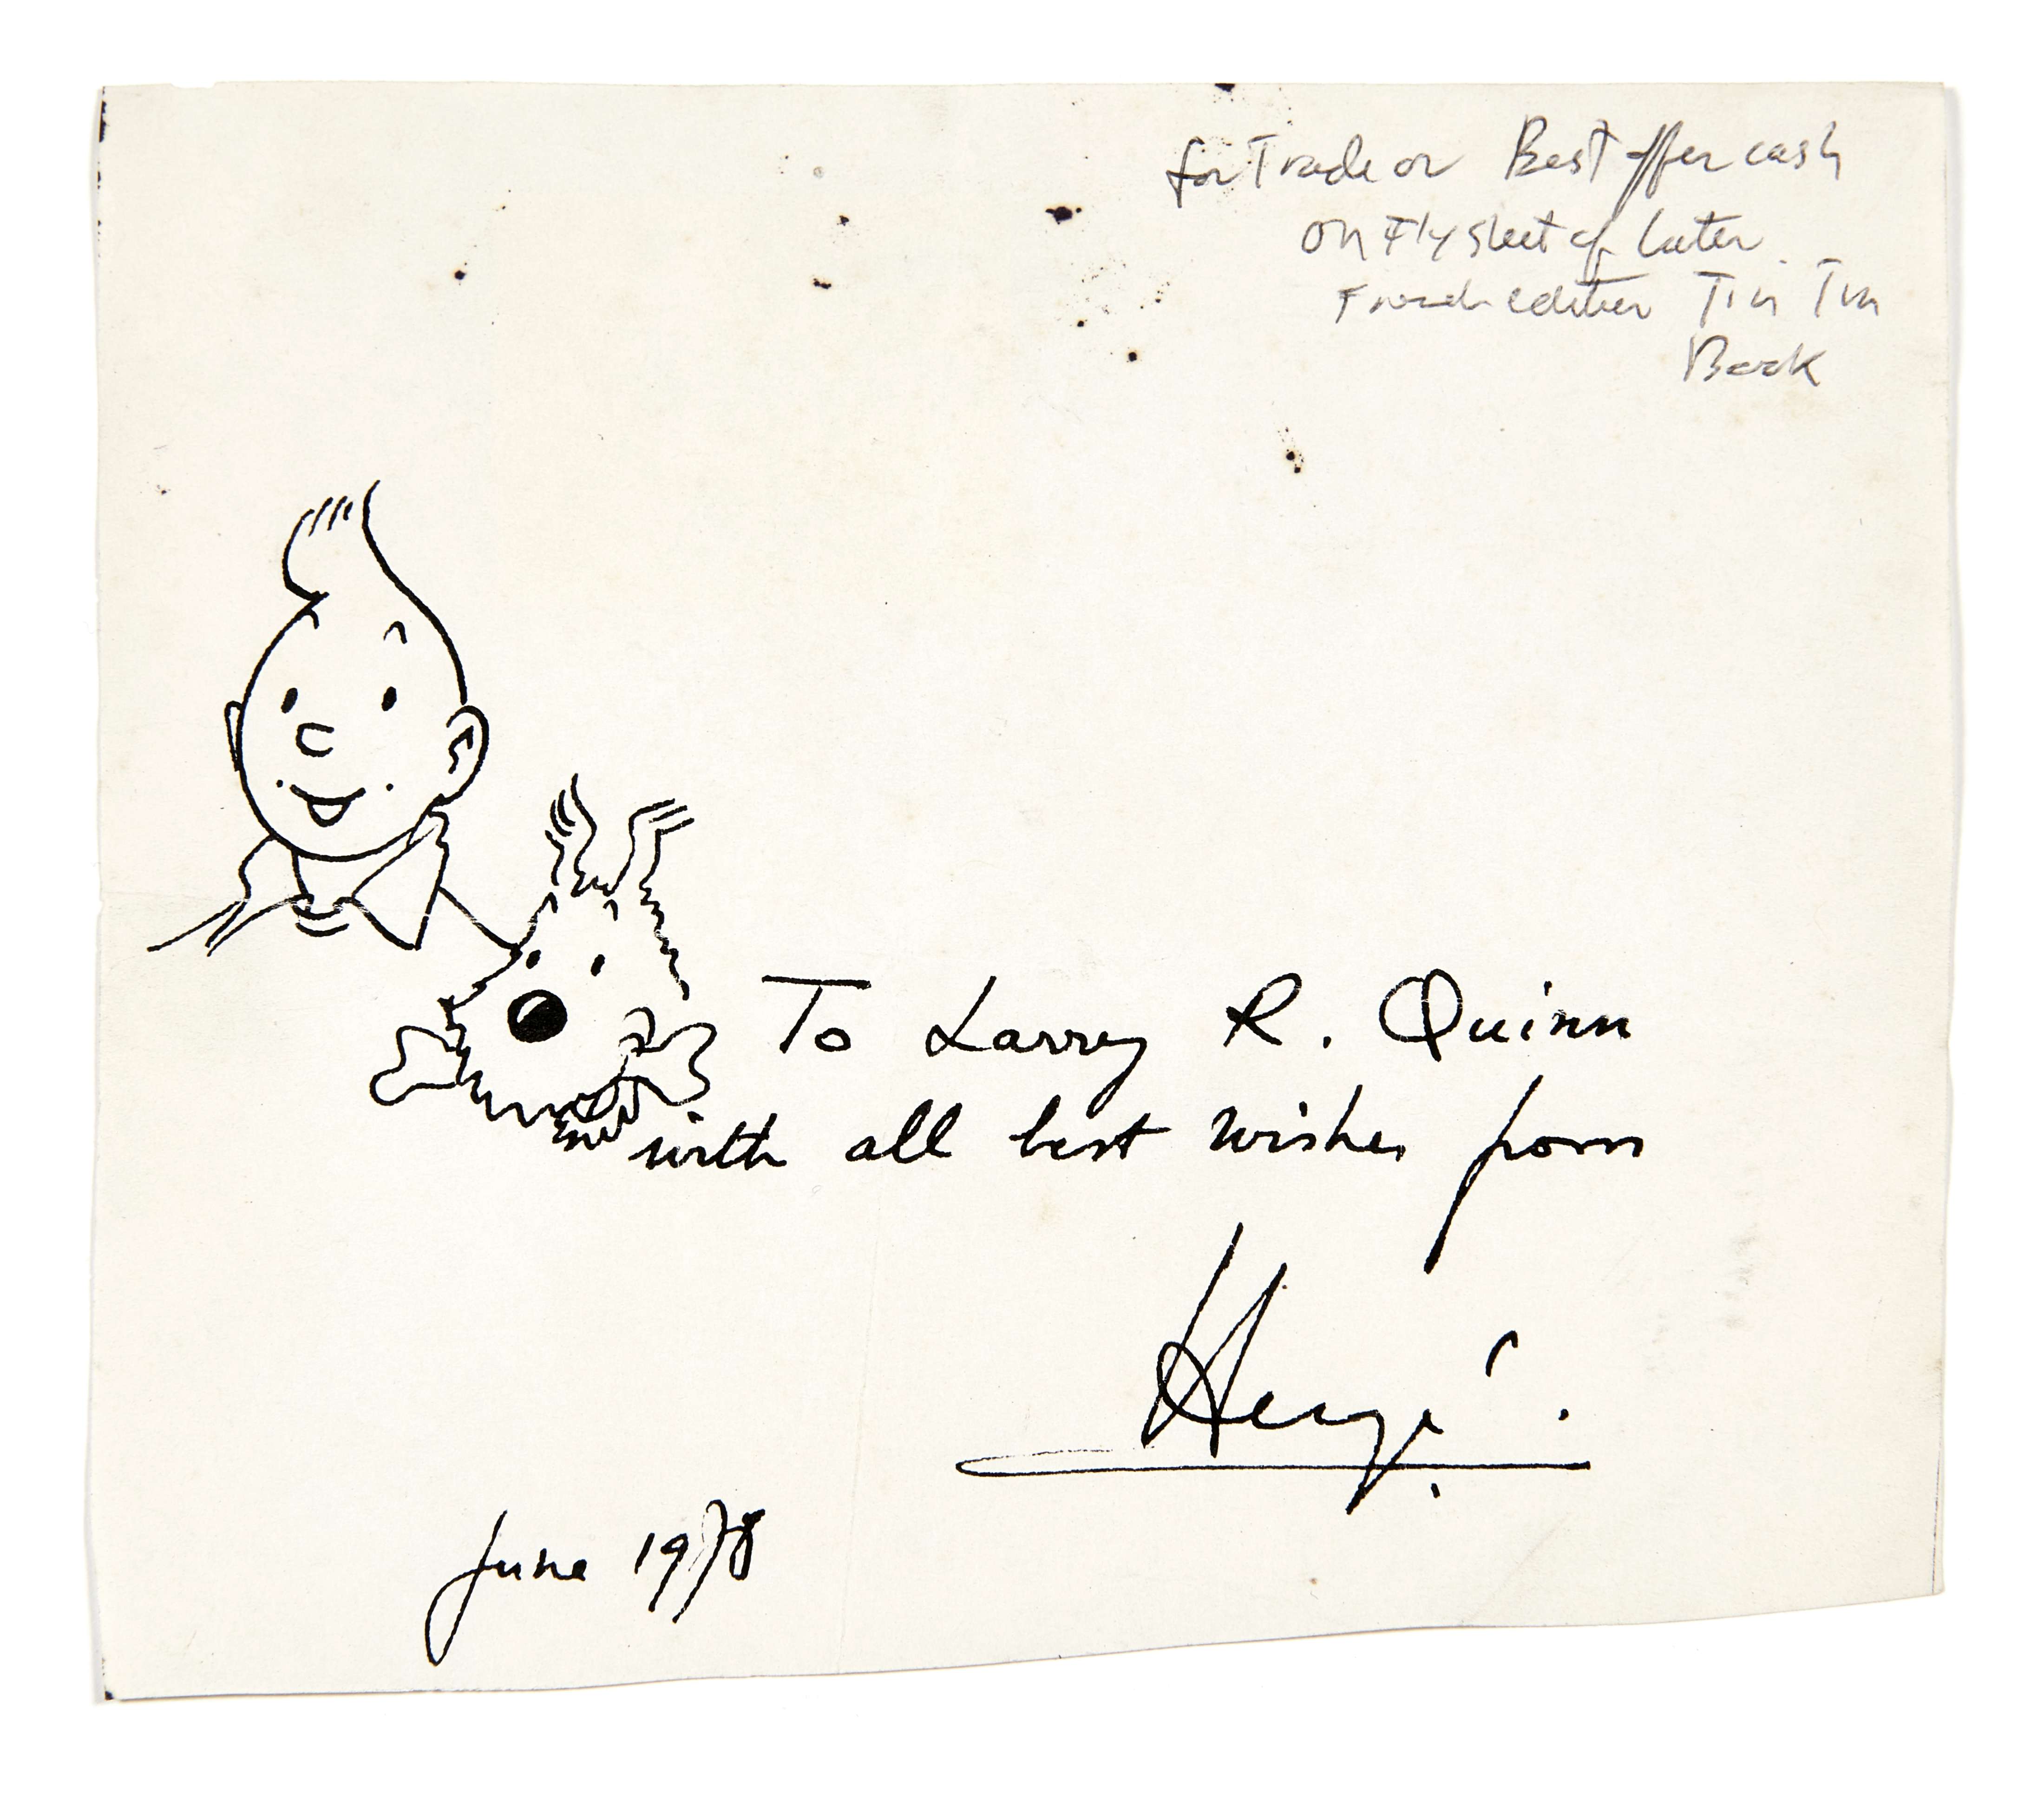 for Trade or Best offer cash
on Fly sheet of later
French edition Tin Tin
Book
To Larry R. Quinn
with all best wishes from
Hergé.
June 1978